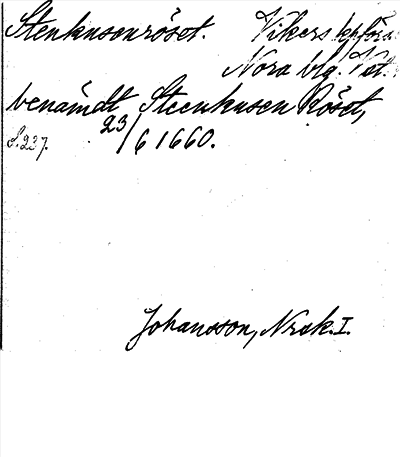 Stenkusenröset. Vikers kpförs.
Nora brg. Vstm.
benämdt Steenkusen Röset,
S. 237. 23/6 1660.
Johansson, Nrsk. I.